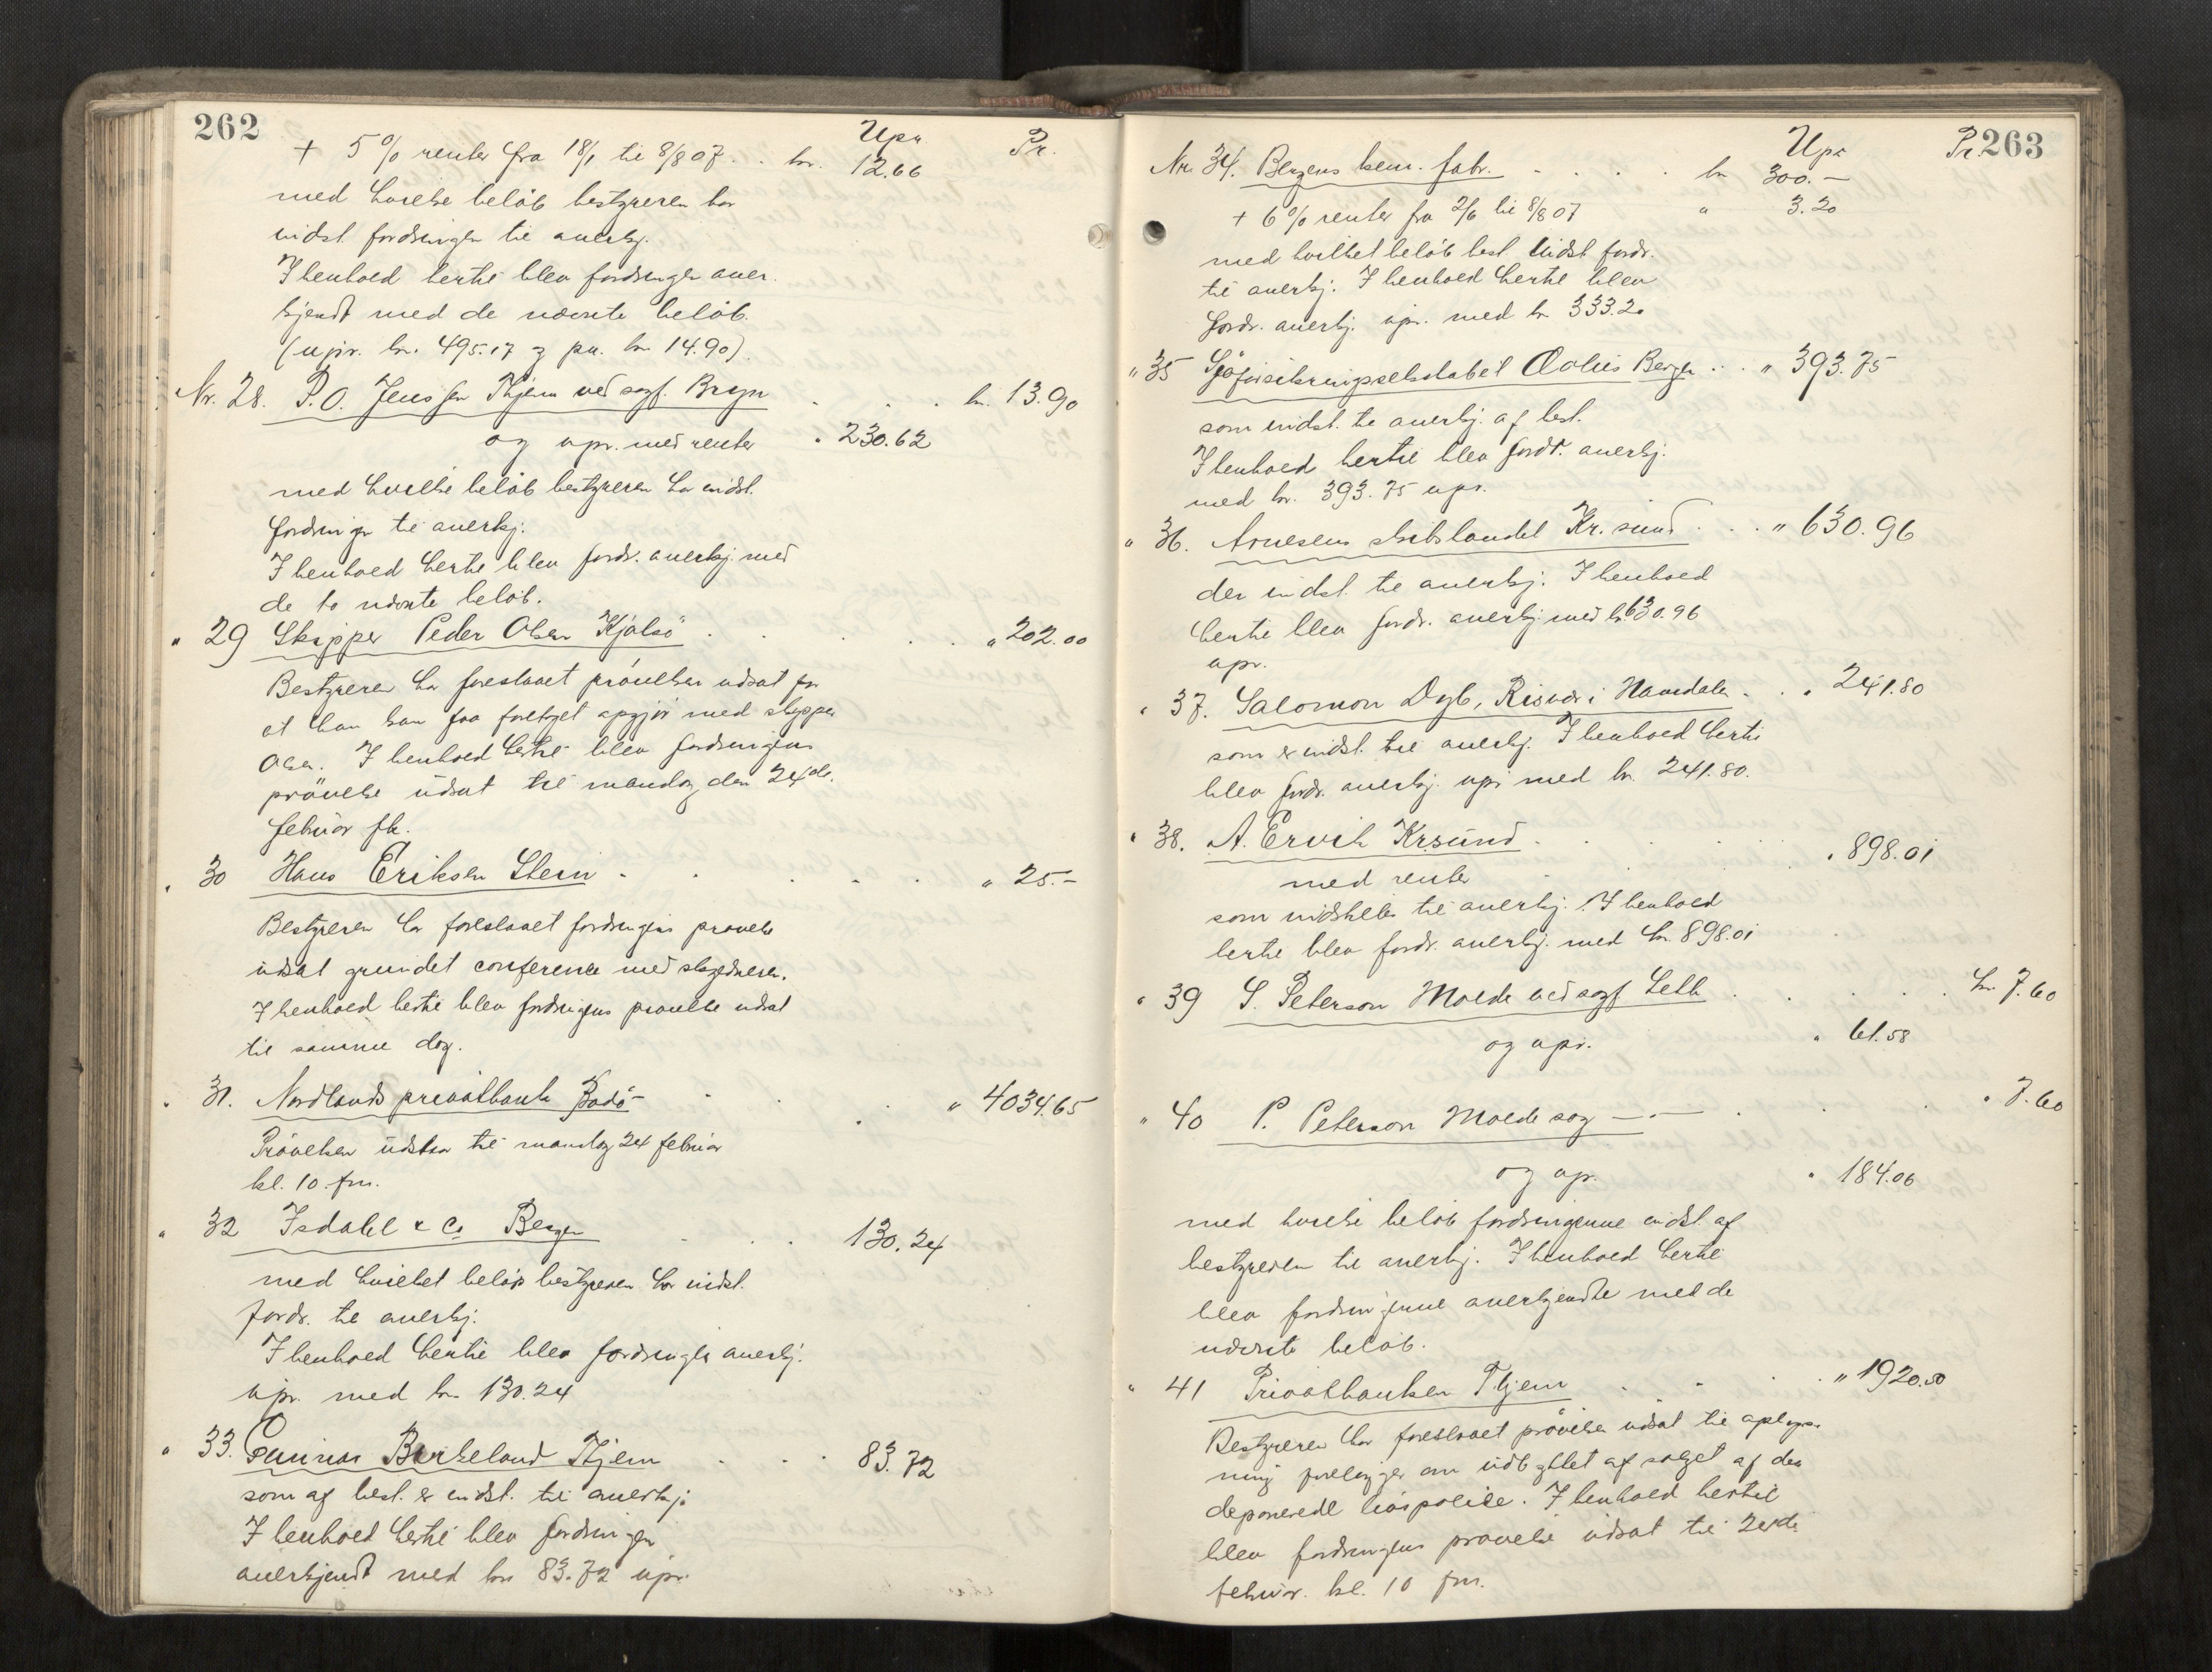 262
Upr. Pr.
+ 5 % renter fra 18/1 til 8/8 07 . . kr. 12.66
med hvilke beløb bestyreren har
indst. fordringen til anerkj.
I henhold hertil blev fordringen aner-
kjendt med de nævnte beløb.
(upr. kr. 495.17 og pr. kr 14.90).
Nr. 28. P. O. Jenssen Thjem ved sagf. Bryn . . . kr. 13.90
og upr. med renter " 230.62
med hvilke beløb bestyreren har indst.
fordringen til anerkj.
I henhold hertil blev fordr. anerkj. med
de to nævnte beløb.
" 29 Skipper Peder Olsen Kjølsö . . . . " 202.00
Bestyreren har foreslaaet prövelsen udsat for
at han kan faa foretaget opgjør med skipper
Olsen. I henhold hertil blev fordringens
prövelse udsat til mandag den 24de
februar fk.
" 30 Hans Eriksen Stein . . . . . " 25.-
Bestyreren har foreslaaet fordringens prøvelse
udsat grundet conference med skyldneren.
I henhold hertil blev fordringens prøvelse udsat
til samme dag.
" 31. Nordlands privatbank Bodö . . . . " 4034.65
Prövelsen udstaar til mandag 24 februar
kl. 10 fm.
" 32 Isdahl & Co Bergen . . . 130.24
med hvilket beløb bestyreren har indst.
fordr. til anerkj.
I henhold hertil blev fordringen anerkj.
upr. med kr. 130.24
" 33. Gunnar Birkeland Thjem . . . 83.72
som af best. er indst. til anerkj.
I henhold hertil blev fordringen
anerkjendt med kr 83.72 upr.
263
Upr Pr.
Nr. 34. Bergens kem. fabr. . . . . kr 300.—
+ 6 % renter fra 2/6 til 8/8 07 " 3.20
med hvilket beløb best. indst. fordr.
til anerkj. I henhold hertil blev
fordr. anerkj. upr. med kr 333.20
" 35 Sjöforsikringsselskabet Æolus Bergen . . . " 393.75
som indst. til anerkj. af best.
I henhold hertil blev fordr. anerkj.
med kr. 393.75 upr.
" 36. Arnesens skibshandel Kr.sund . . . " 630.96
der indst. til anerkj. I henhold
hertil blev fordr. anerkj. med kr. 630.96
upr.
" 37. Salomon Dyb, Risvær i Namdalen . . " 241.80
som er indst. til anerkj. I henhold hertil
blev fordr. anerkj. upr med kr. 241.80.
" 38. A. Ervik Krsund . . . . . " 898.01
med renter
som indstilles til anerkj. I henhold
hertil blev fordr. anerkj. med kr. 898.01
" 39 S. Peterson Molde ved sagf . . . . . kr 7.60
og upr. " 61.58
" 40 P. Peterson Molde sag —"— . . . " 7.60
og upr. " 184.06
med hvilke beløb fordringerne indst. af
bestyreren til anerkj. I henhold hertil
blev fordringerne anerkjendte med de
nævnte beløb.
" 41 Privatbanken Thjem . . . . " 1920.50
Bestyreren har foreslaaet prövelsen udsat til oplys-
ning foreligger om udbyttet af salget af den
deponerede livspolice. I henhold hertil
blev fordringens prøvelse udsat til 24de
februar. kl. 10 fm.